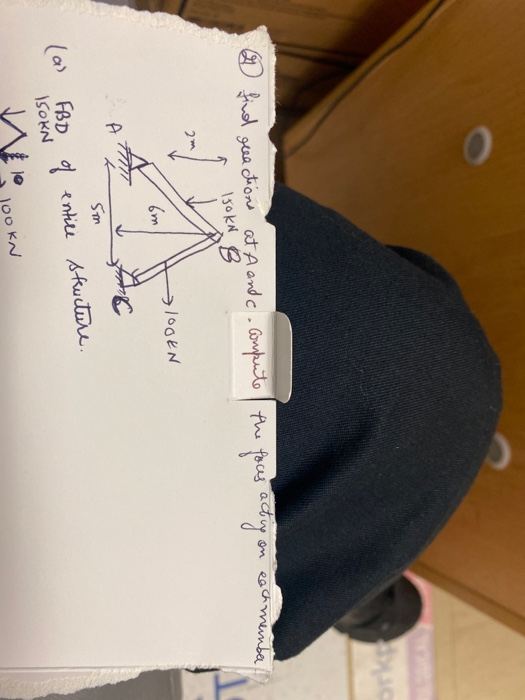 24) find reactions at A and C. Compute the forces acting on each member
150KN
B
2m
6m
100KN
A
C
5m
(a) FBD of entire structure.
150KN
100KN